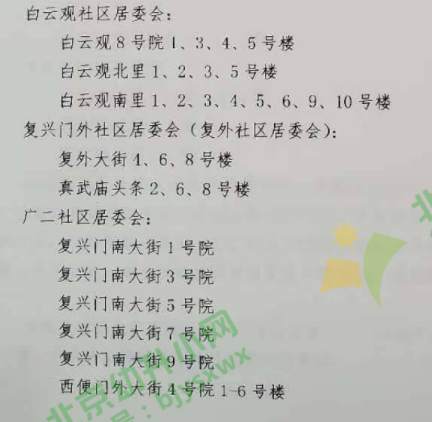 白云观社区居委会：
白云观8号院1、3、4、5号楼
白云观北里1、2、3、5号楼
白云观南里1、2、3、4、5、6、9、10号楼
复兴门外社区居委会（复外社区居委会）：
复外大街4、6、8号楼
真武庙头条2、6、8号楼
广二社区居委会：
复兴门南大街1号院
复兴门南大街3号院
复兴门南大街5号院
复兴门南大街7号院
复兴门南大街9号院
西便门外大街4号院1-6号楼
北京幼升小网
号：bjysxwx